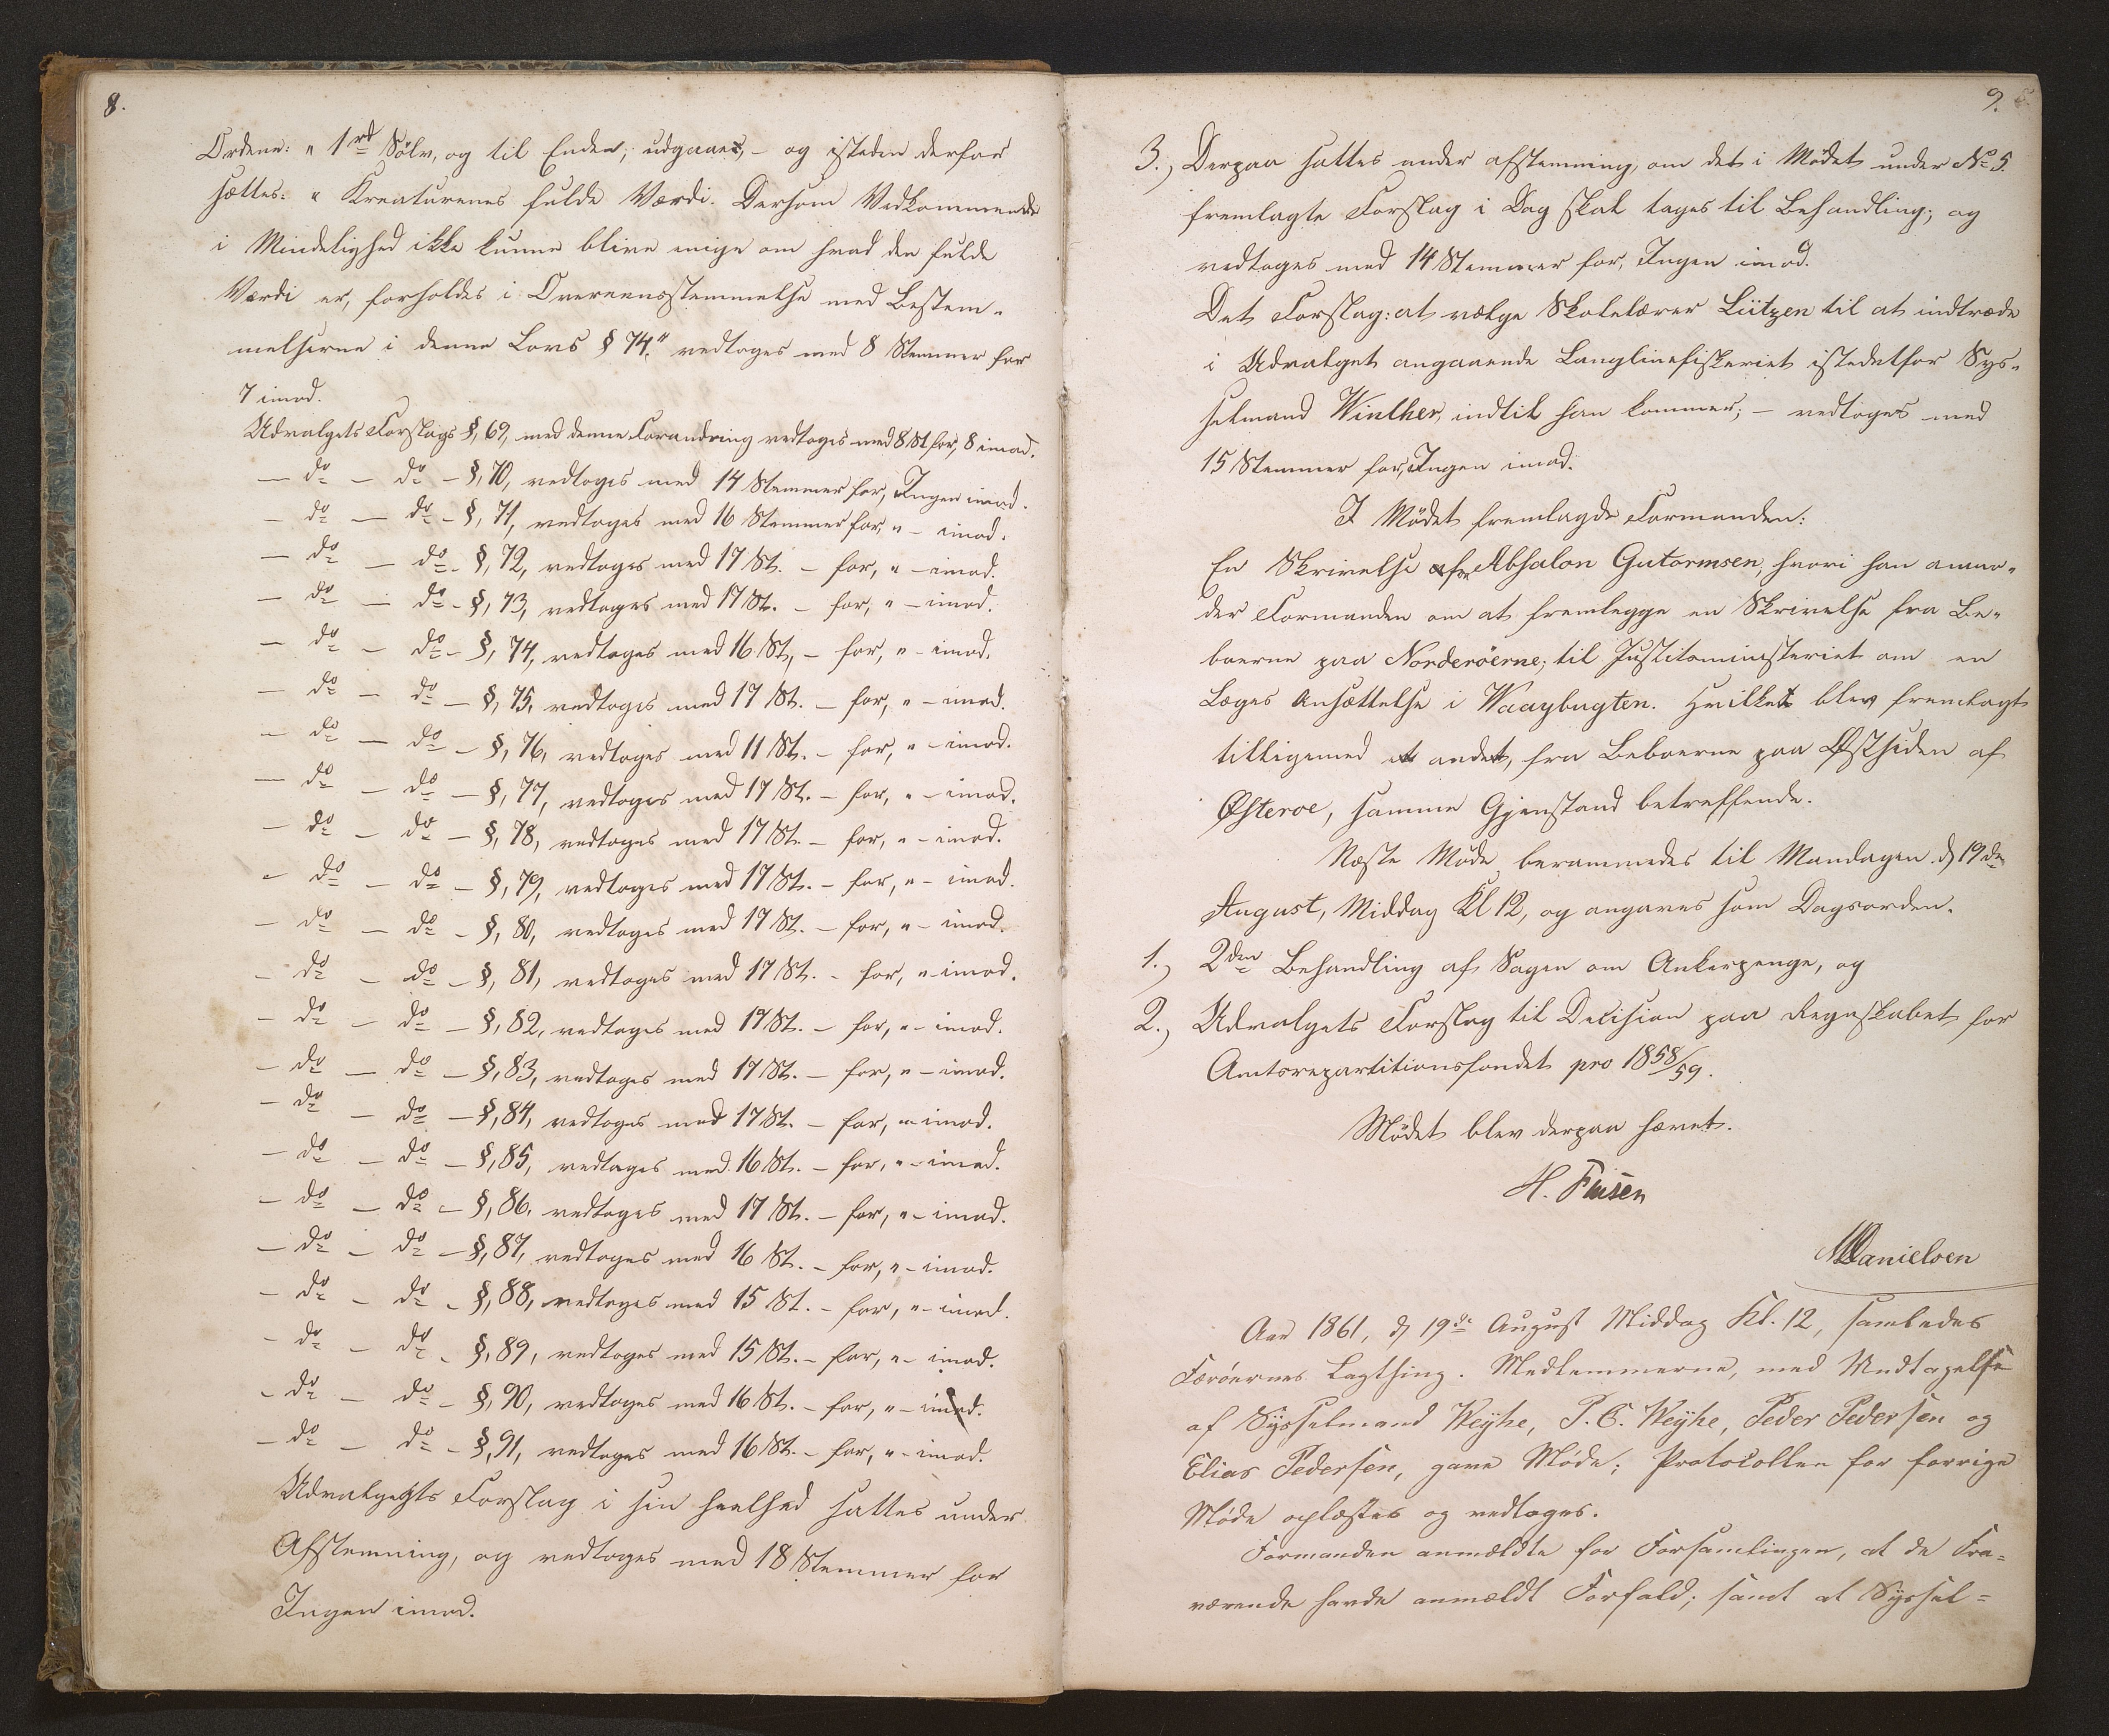 8.
Ordene: „ 1 rd Sølv, og til Enden, udgaaer, – og isteden derfor
sættes: „ Kreaturenes fulde Værdi. Dersom Vedkommende
i Mindelighed ikke kunne blive enige om hvad den fulde
Værdi er, forholdes i Overeensstemmelse med Bestem-
melserne i denne Lovs § 74." vedtoges med 8 Stemmer for
7 imod.
Udvalgets Forslags §, 69, med denne Forandring vedtoges med 8 St. for, 8 imod.
— do — do — §, 70, vedtoges med 14 Stemmer for, Ingen imod.
— do — do — §, 71, vedtoges med 16 Stemmer for, „ — imod.
— do — do — §, 72, vedtoges med 17 St. — for, „ — imod.
— do — do — §, 73, vedtoges med 17 St. — for, „ — imod.
— do — do — §, 74, vedtoges med 16 St, — for, „ — imod.
— do — do — §, 75, vedtoges med 17 St. — for, „ — imod.
— do — do — §, 76, vedtoges med 11 St. — for, „ — imod.
— do — do — §, 77, vedtoges med 17 St. — for, „ — imod.
— do — do — §, 78, vedtoges med 17 St. — for, „ — imod.
— do — do — §, 79, vedtoges med 17 St. — for, „ — imod.
— do — do — §, 80, vedtoges med 17 St. — for, „ — imod.
— do — do — §, 81, vedtoges med 17 St. — for, „ — imod.
— do — do — §, 82, vedtoges med 17 St. — for, „ — imod.
— do — do — §, 83, vedtoges med 17 St. — for, „ — imod.
— do — do — §, 84, vedtoges med 17 St. — for, „ — imod.
— do — do — §, 85, vedtoges med 16 St. — for, „ — imod.
— do — do — §, 86, vedtoges med 17 St. — for, „ — imod.
— do — do — §, 87, vedtoges med 16 St. — for, „ — imod.
— do — do — §, 88, vedtoges med 15 St. — for, „ — imod.
— do — do — §, 89, vedtoges med 15 St. — for, „ — imod.
— do — do — §, 90, vedtoges med 16 St. — for, „ — imod.
— do — do — §, 91, vedtoges med 16 St. — for, „ — imod.
Udvalgets Forslag i sin heelhed sattes under
Afstemning, og vedtoges med 18 Stemmer for
Ingen imod.
9.
3.) Derpaa sattes under afstemning, om det i Mødet under No 5.
fremlagte Forslag i Dag skal tages til Behandling, og
vedtoges med 14 Stemmer for, Ingen imod.
Det Forslag: at vælge Skolelærer Lützen til at indtræde
i Udvalget angaaende Langlinefiskeriet istedetfor Sys-
selmand Winther, indtil han kommer; — vedtoges med
15 Stemmer for, Ingen imod.
I Mødet fremlagde Formanden:
En Skrivelse fra Absalon Gutormsen, hvori han anmo-
der Formanden om at fremlegge en Skrivelse fra Be-
boerne paa Norderöerne, til Justitsministeriet om en
Læges Ansættelse i Waaybugten. Hvilket blev fremlagt
tilligemed et andet, fra Beboerne paa Østsiden af
Østeroe, samme Gjenstand betreffende.
Næste Møde berammedes til Mandagen d. 19de
August, Middag Kl 12, og angaves som Dagsorden.
1.) 2den Behandling af Sagen om Ankerpenge, og
2.) Udvalgets Forslag til Decision paa Regnskabet for
Amtsrepartitionsfondet pro 1858/59.
Mødet blev derpaa hævet.
H. Finsen
MDanielsen
Aar 1861, d. 19de August Middag Kl. 12, samledes
Færöernes Lagthing. Medlemmerne, med Undtagelse
af Sysselmand Weyhe, P. C. Weyhe, Peder Pedersen og
Elias Pedersen, gave Møde; Protocollen for forrige
Møde oplæstes og vedtoges.
Formanden anmeldte for Forsamlingen, at de Fra-
værende havde anmeldt Forfald; samt at Syssel-